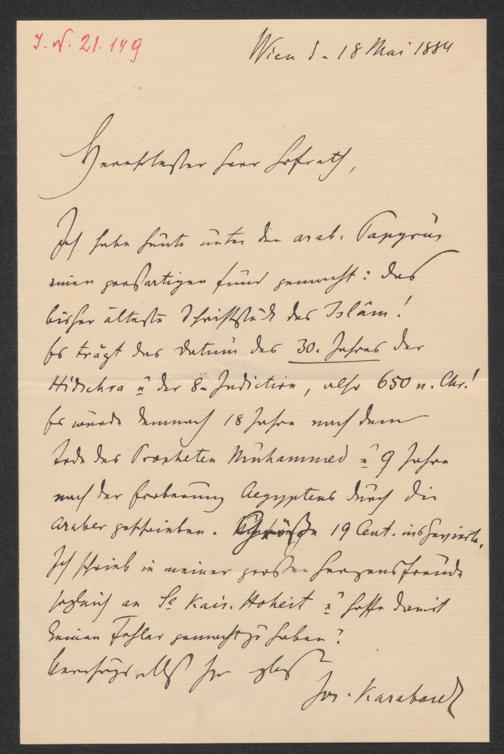 I. N. 21.149
Wien d. 18 Mai 1884
Verehrtester Herr Hofrath,
Ich habe heute unter den arab. Papyrus
einen großartigen Fund gemacht: das
bisher älteste Schriftstück des Islâm!
Es trägt das Datum des 30. Jahres der
Hidschra u. der 8. Indiction, also 650 n. Chr.!
Es wurde demnach 18 Jahre nach dem
Tode des Propheten Muhammed u. 9 Jahre
nach der Eroberung Aegyptens durch die
Araber geschrieben. Größe 19 Cent. ins Gevierte.
Ich schrieb in meiner großen Herzensfreude
sogleich an Se Kais. Hoheit u. hoffe damit
keinen Fehler gemacht zu haben?
Ihr
Jos. Karabacek